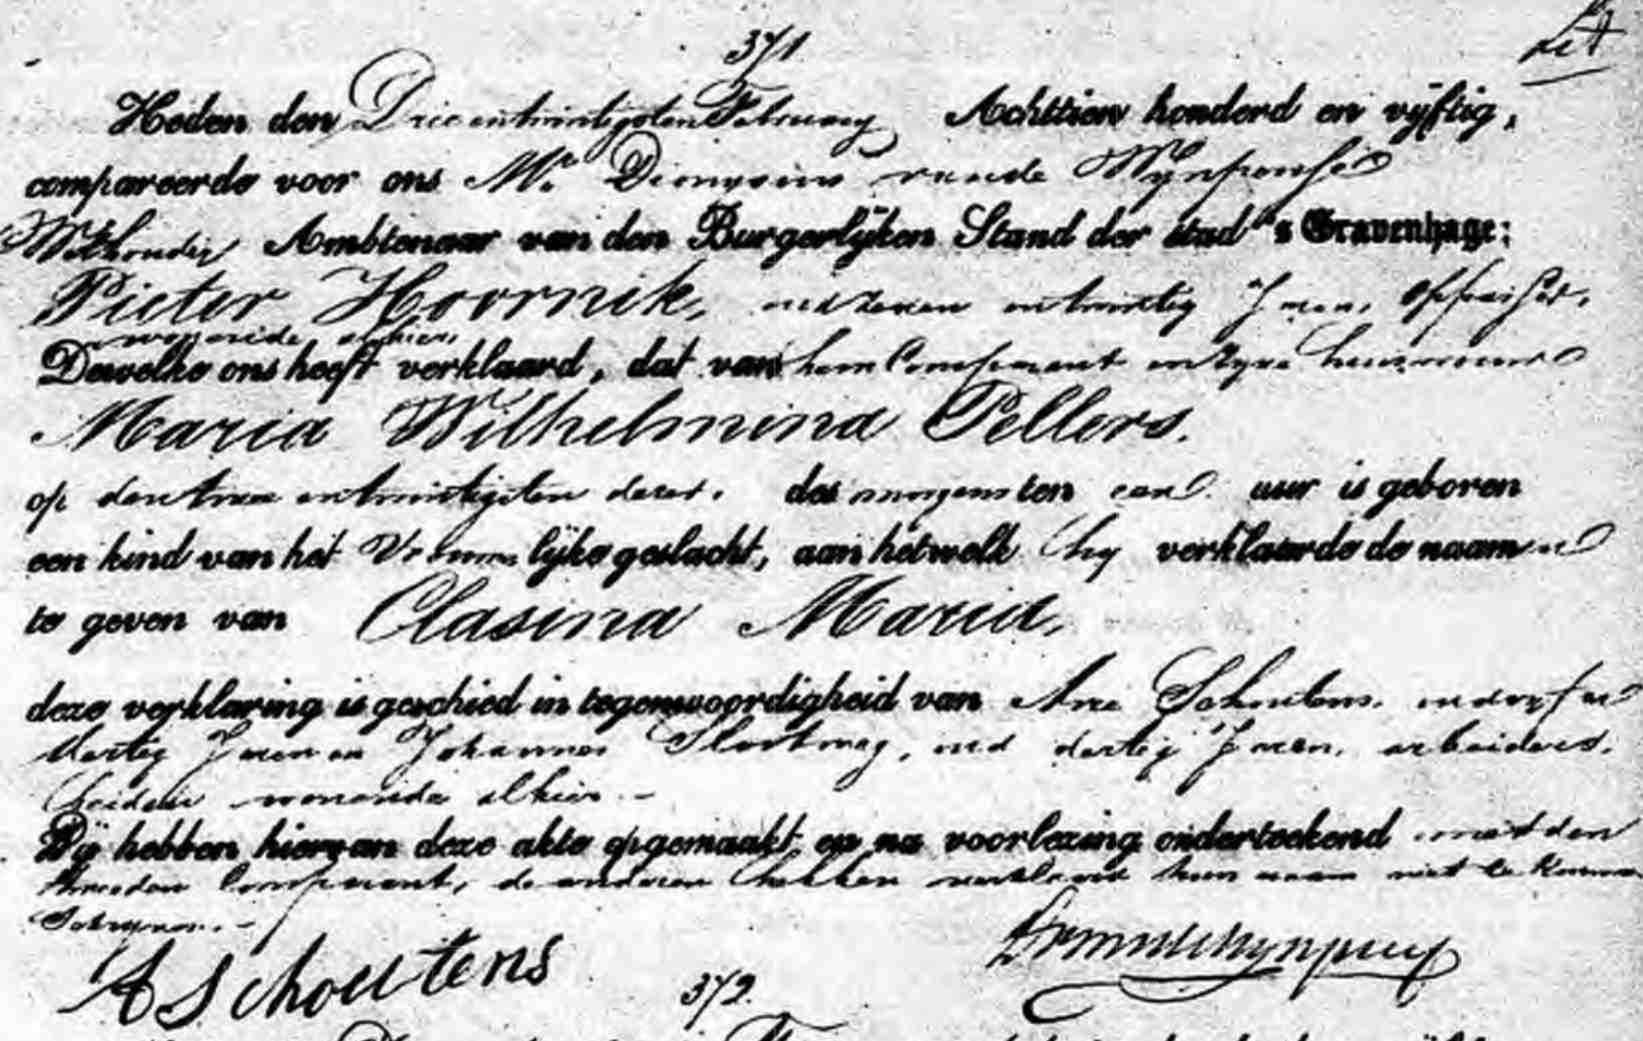 371.
Heden den Drie entwintigsten February Achttien honderd en vijftig,
compareerde voor ons Mr. Dionysius van de Wijnpersse
Wethouder Ambtenaar van den Burgerlijken Stand der stad 's Gravenhage:
Pieter Hoornik, oud zeven entwintig Jaren, oppasser,
wonende alhier,
Dewelke ons heeft verklaard, dat van hem Comparant en zyne huisvrouw
Maria Wilhelmina Pellers.
op den twee entwintigsten dezer. des morgens ten een uur is geboren
een kind van het Vrouwelijke geslacht, aan hetwelk hy verklaarde de naamen
te geven van Clasina Maria,
deze verklaring is geschied in tegenwoordigheid van Arie Schoutens. oud vyf en
dertig Jaren en Johannes Slootweg, oud dertig Jaren, arbeiders.
beiden wonende alhier.-
Wij hebben hiervan deze akte opgemaakt en na voorlezing onderteekend met den
tweeden Comparant, de anderen hebben verklaard hun naam niet te kunnen
Schryven.-
A Schoutens
372.